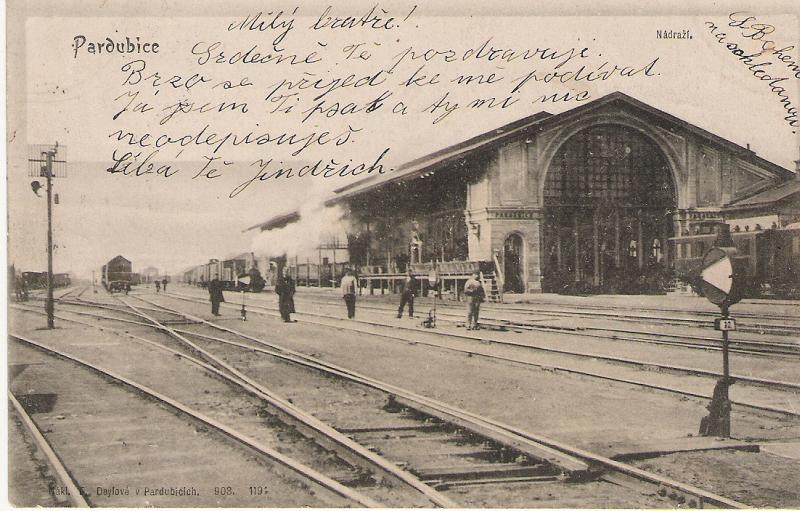 Pardubice
Nádraží.
Milý bratře!
Srdečně Tě pozdravuji.
Brzo se přijeď ke mě podívat.
Já jsem Ti psal a ty mi nic
neodepisuješ.
Líbá Tě Jindřich
na shledanou.
PARDUBICE
Nákl. F. Deylové v Pardubicích. 903. 1191